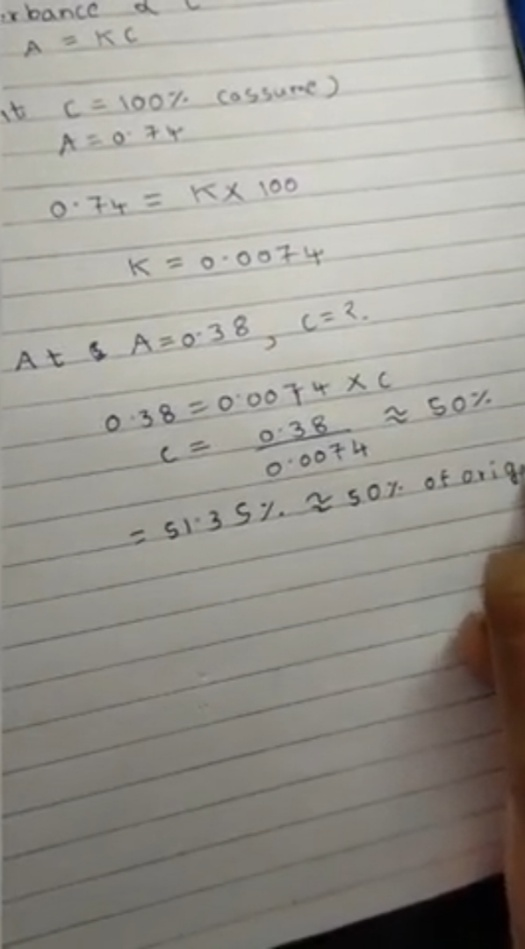 rbance α C
A = KC
it C = 100% (assume)
A = 0.74
0.74 = K X 100
K = 0.0074
At A = 0.38, C = ?.
0.38 = 0.0074 X C
C = 0.38 / 0.0074 ≈ 50%
= 51.35% ≈ 50% of orig